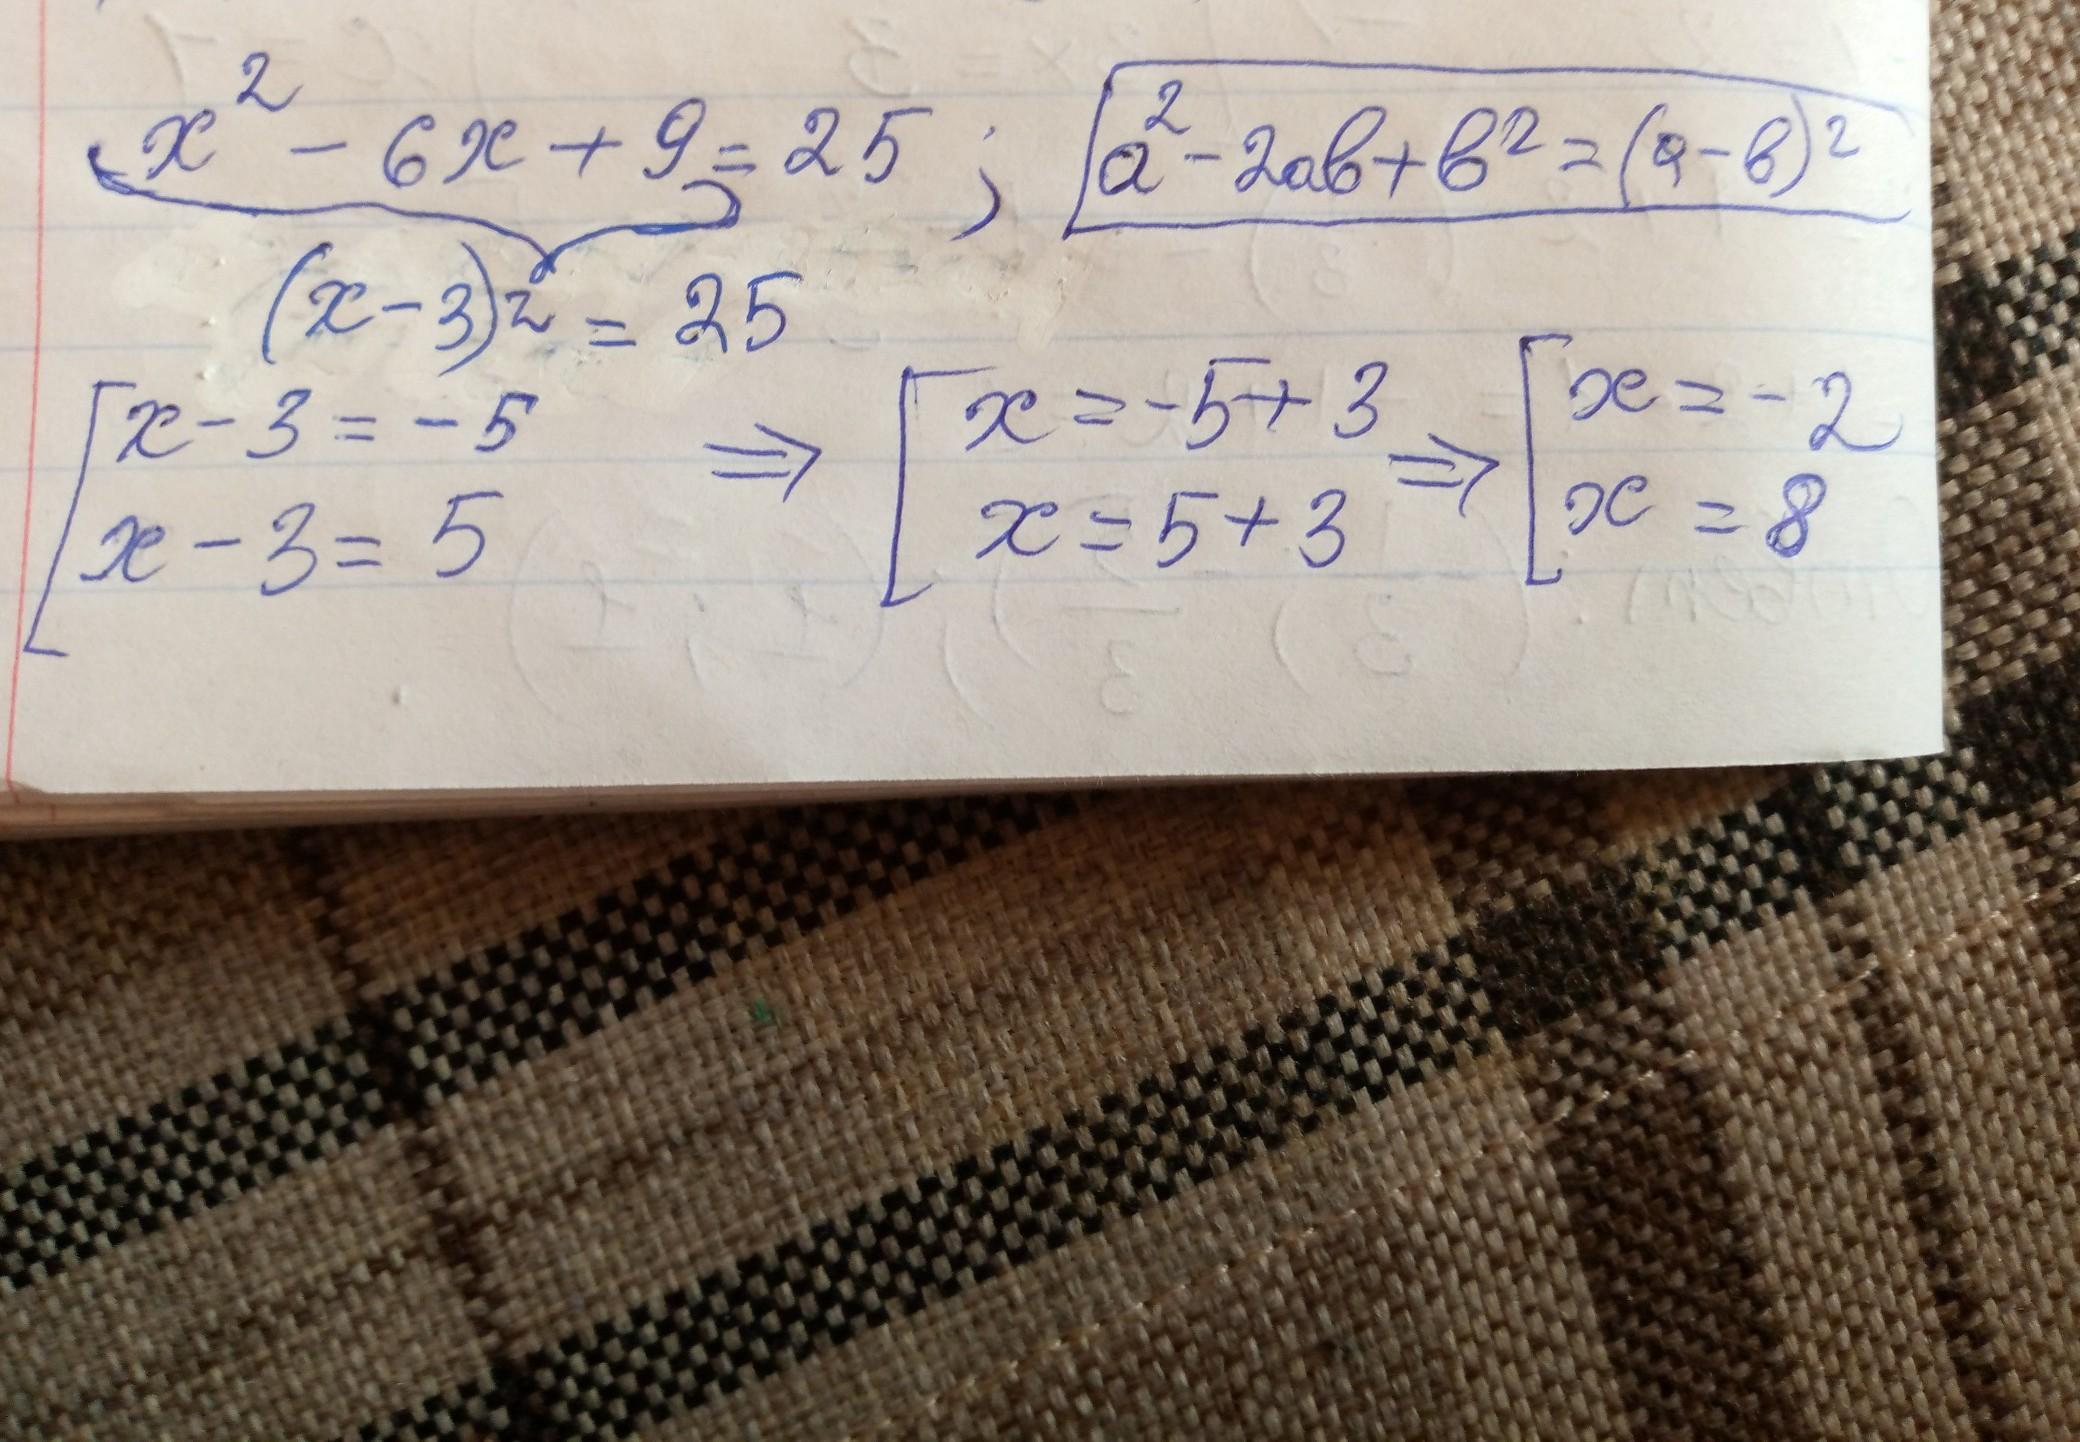 x² - 6x + 9 = 25 ; a² - 2ab + b² = (a - b)²
(x - 3)² = 25
[x - 3 = -5 ⇒ [x = -5 + 3 ⇒ [x = -2
x - 3 = 5 x = 5 + 3 x = 8